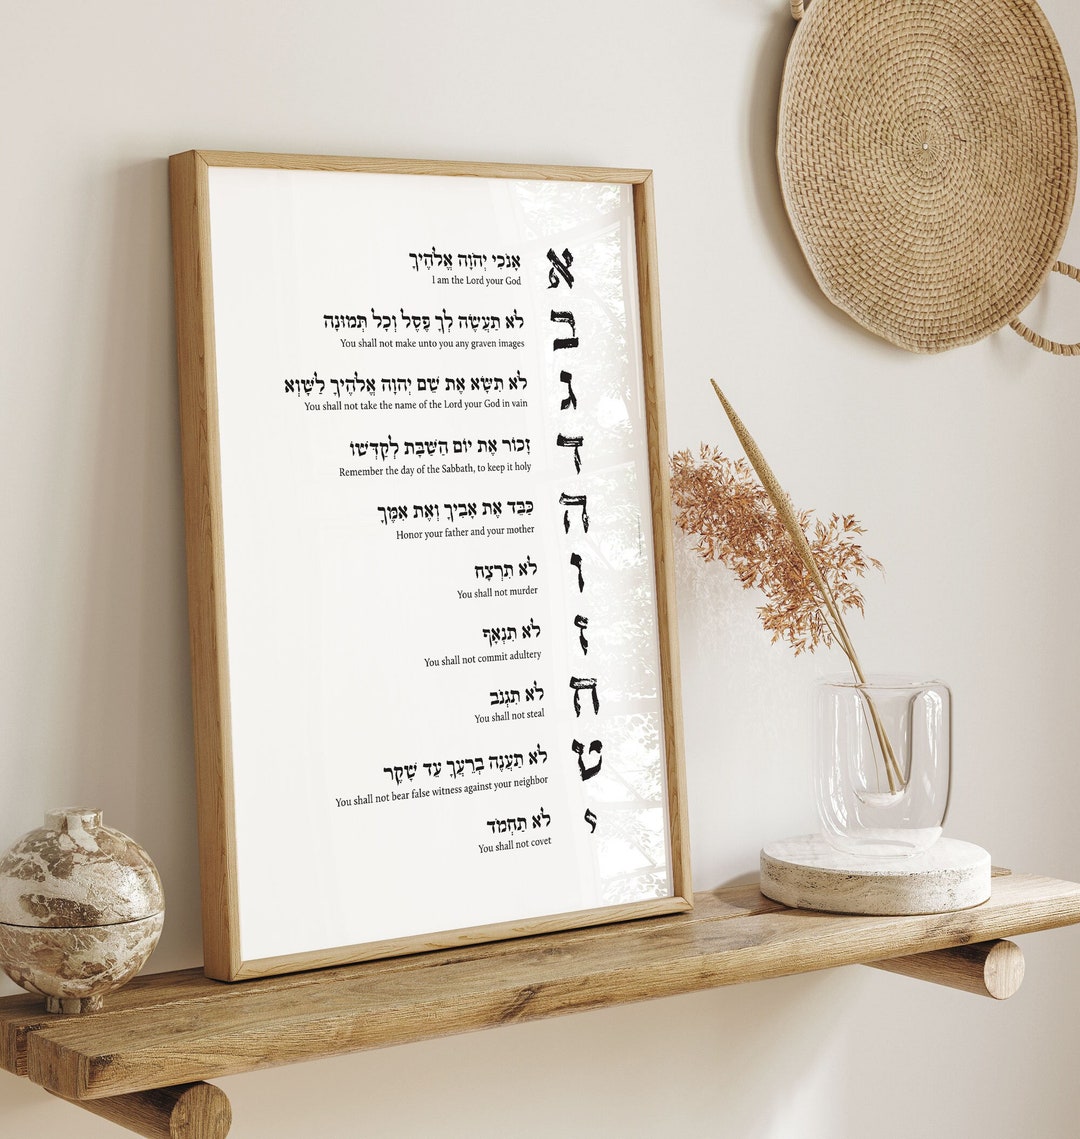 א
אָנֹכִי יְהֹוָה אֱלֹהֶיךָ
I am the Lord your God
ב
לֹא תַעֲשֶׂה לְךָ פֶסֶל וְכָל תְּמוּנָה
You shall not make unto you any graven images
ג
לֹא תִשָּׂא אֶת שֵׁם יְהֹוָה אֱלֹהֶיךָ לַשָּׁוְא
You shall not take the name of the Lord your God in vain
ד
זָכוֹר אֶת יוֹם הַשַּׁבָּת לְקַדְּשׁוֹ
Remember the day of the Sabbath, to keep it holy
ה
כַּבֵּד אֶת אָבִיךָ וְאֶת אִמֶּךָ
Honor your father and your mother
ו
לֹא תִרְצָח
You shall not murder
ז
לֹא תִנְאָף
You shall not commit adultery
ח
לֹא תִגְנֹב
You shall not steal
ט
לֹא תַעֲנֶה בְרֵעֲךָ עֵד שָׁקֶר
You shall not bear false witness against your neighbor
י
לֹא תַחְמֹד
You shall not covet